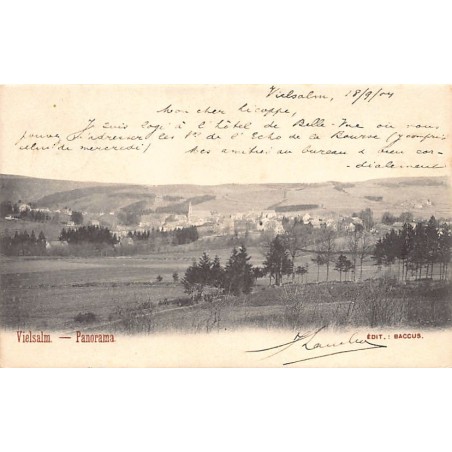 Vielsalm, 18/9/04
Mon cher Licoppe,
Je suis logé à l'hôtel de Belle-Vue où vous
pouvez m'adresser les Nos de l'Echo de la Bourse (y compris
celui de mercredi) Mes amitiés au bureau & bien cor-
dialement
Vielsalm. — Panorama
ÉDIT. : BACCUS.